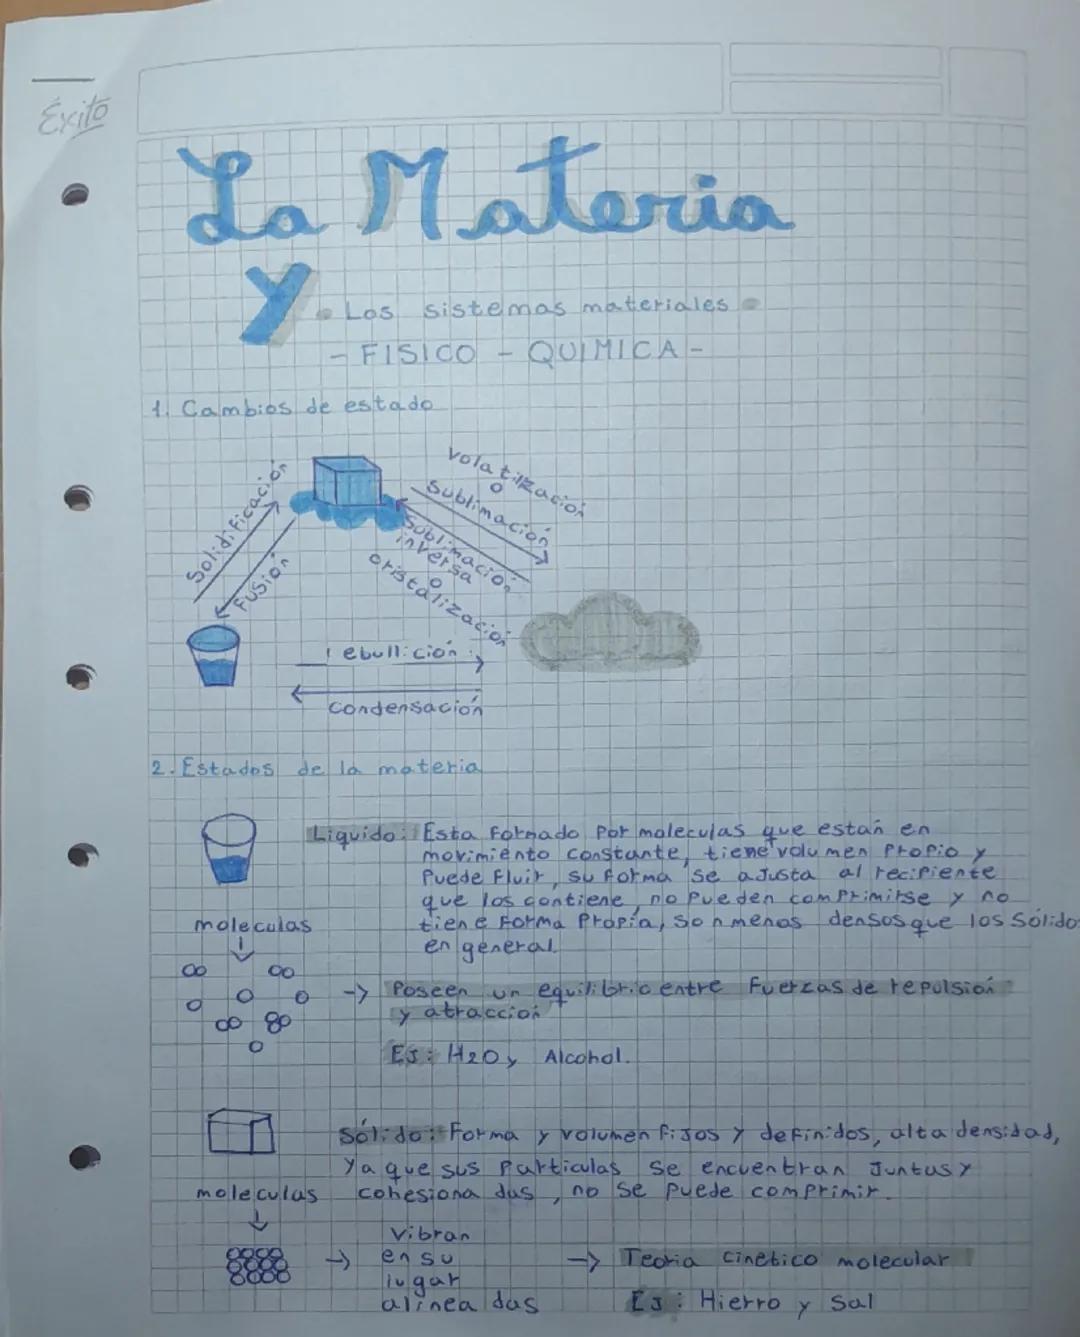 Éxito
La Materia
y
Los sistemas materiales
- FISICO - QUIMICA -
1. Cambios de estado
Solidificación
Fusión
Volatilización
o
Sublimación
Sublimación
inversa
o
cristalización
ebullición
Condensación
2. Estados de la materia
Liquido: Esta formado por moleculas que estan en
movimiento constante, tiene volumen propio y
puede fluir, su forma se ajusta al recipiente
que los contiene, no pueden comprimirse y no
tiene forma propia, son menos densos que los sólido
en general.
moleculas
-> Poseen un equilibrio entre fuerzas de repulsión
y atracción
EJ: H2O y Alcohol.
Sólido: Forma y volumen fijos y definidos, alta densidad,
ya que sus particulas se encuentran juntas y
cohesionadas, no se puede comprimir.
moleculas
-> vibran
en su
lugar
alineadas
-> Teoria cinetico molecular
EJ: Hierro y Sal